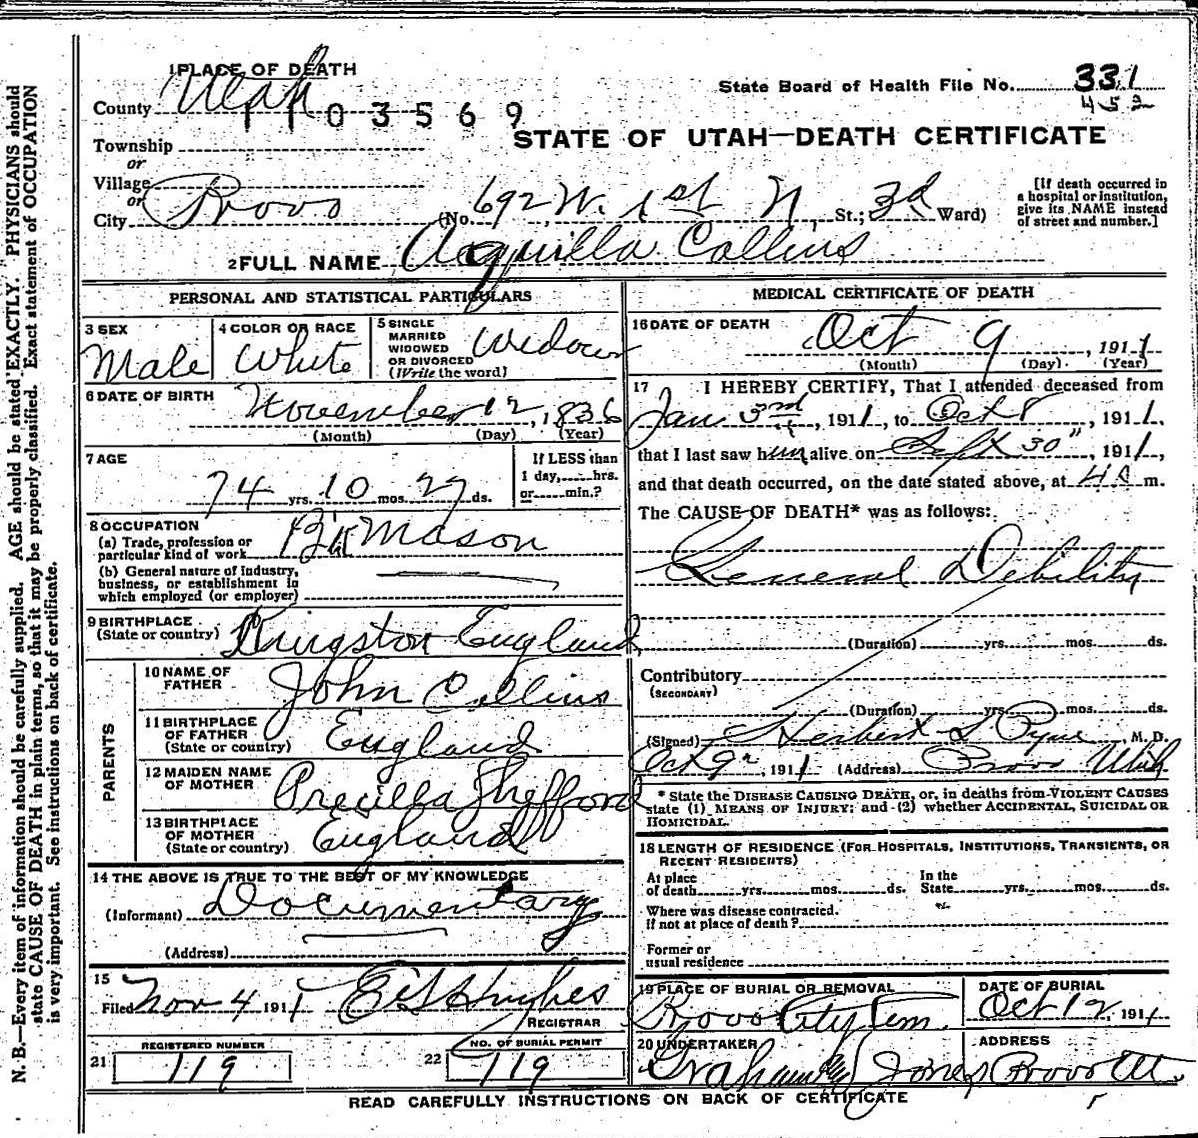 1 PLACE OF DEATH
County Utah
1103569
State Board of Health File No. 331
452
STATE OF UTAH—DEATH CERTIFICATE
Township
or
Village
or
City Provo (No. 692 W. 1st N, St.; 3d Ward)
[If death occurred in a hospital or institution, give its NAME instead of street and number.]
2 FULL NAME Acquilla Collins
PERSONAL AND STATISTICAL PARTICULARS
3 SEX
Male
4 COLOR OR RACE
White
5 SINGLE
MARRIED
WIDOWED
OR DIVORCED
(Write the word)
Widower
6 DATE OF BIRTH
November 12, 1836
(Month) (Day) (Year)
7 AGE
74 yrs. 10 mos. 27 ds.
If LESS than
1 day, hrs.
or min.?
8 OCCUPATION
(a) Trade, profession or
particular kind of work Mason
(b) General nature of industry,
business, or establishment in
which employed (or employer)
9 BIRTHPLACE
(State or country) Kingston England
PARENTS
10 NAME OF
FATHER John Collins
11 BIRTHPLACE
OF FATHER
(State or country) England
12 MAIDEN NAME
OF MOTHER Precilla Shefford
13 BIRTHPLACE
OF MOTHER
(State or country) England
14 THE ABOVE IS TRUE TO THE BEST OF MY KNOWLEDGE
(Informant) Documentary
(Address)
15
Filed Nov 4 1911 Hughes
REGISTRAR
REGISTERED NUMBER
21 119
NO. OF BURIAL PERMIT
22 119
MEDICAL CERTIFICATE OF DEATH
16 DATE OF DEATH
Oct 9, 1911
(Month) (Day) (Year)
17 I HEREBY CERTIFY, That I attended deceased from
Jan 3rd, 1911, to Oct 8, 1911,
that I last saw him alive on Sept 30", 1911,
and that death occurred, on the date stated above, at 4 a m.
The CAUSE OF DEATH* was as follows:
General Debility
(Duration) yrs. mos. ds.
Contributory
(SECONDARY)
(Duration) yrs. mos. ds.
(Signed) Herbert S Pyne M. D.
Oct 9, 1911 (Address) Provo Utah
* State the DISEASE CAUSING DEATH, or, in deaths from VIOLENT CAUSES
state (1) MEANS OF INJURY; and (2) whether ACCIDENTAL, SUICIDAL OR
HOMICIDAL.
18 LENGTH OF RESIDENCE (FOR HOSPITALS, INSTITUTIONS, TRANSIENTS, OR
RECENT RESIDENTS)
At place
of death yrs. mos. ds.
In the
State yrs. mos. ds.
Where was disease contracted.
if not at place of death?
Former or
usual residence
19 PLACE OF BURIAL OR REMOVAL
Provo City Cem.
DATE OF BURIAL
Oct 12, 1911
20 UNDERTAKER
Graham Jones
ADDRESS
Provo Ut.
READ CAREFULLY INSTRUCTIONS ON BACK OF CERTIFICATE
N. B.—Every item of information should be carefully supplied. AGE should be stated EXACTLY. PHYSICIANS should
state CAUSE OF DEATH in plain terms, so that it may be properly classified. Exact statement of OCCUPATION
is very important. See instructions on back of certificate.